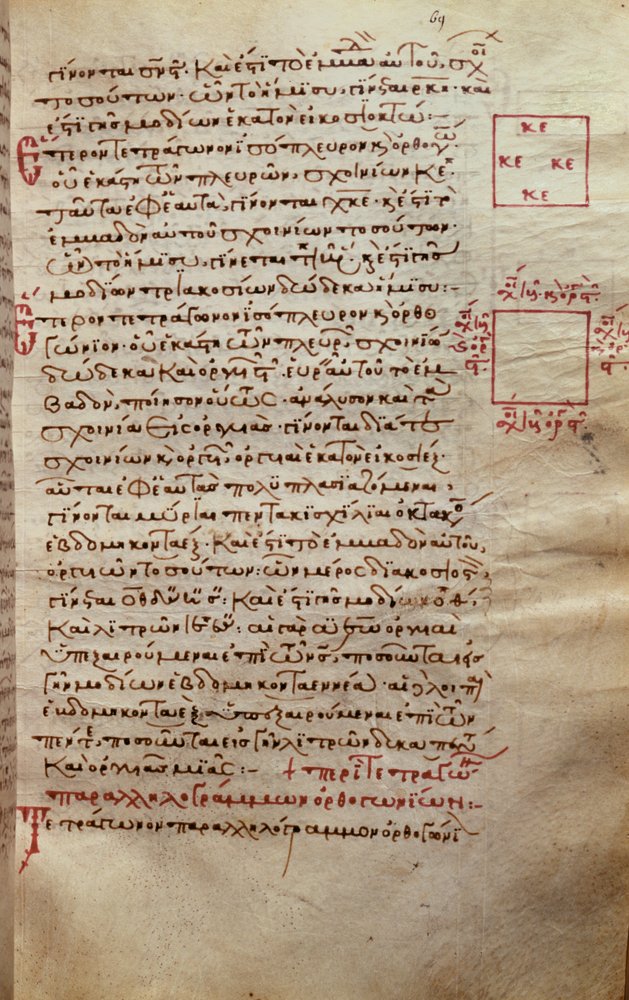 69
γίνονται σνϛ. Καὶ ἔστι τὸ ἐμβαδὸν αὐτοῦ, σχοι
τοσούτων· ὧν τὸ ἥμισυ, γίνεται ρκη· καὶ
ἔστι γῆς μοδίων ἑκατὸν εἰκοσιοκτώ:–
Ἕτερον τετράγωνον ἰσόπλευρον κ ὀρθογώ
οὗ ἑκάστη τῶν πλευρῶν, σχοινίων κε·
ταῦτα ἐφ' ἑαυτά, γίνονται χκε· κ ἔστι τὸ
ἐμβαδὸν αὐτοῦ σχοινίων τοσούτων·
ὧν τὸ ἥμισυ, γίνεται τιβ· κ ἔστι γῆς
μοδίων τριακοσίων δώδεκα ἥμισυ:–
Ἕτερον τετράγωνον ἰσόπλευρον κ ὀρθο
γώνιον· οὗ ἑκάστη τῶν πλευρῶν, σχοινίων
δώδεκα καὶ ὀργυιῶν ϛ. εὑρεῖν αὐτοῦ τὸ ἐμ
βαδόν, ποίησον οὕτως· ἀνάλυσον καὶ τὰ
σχοινία εἰς ὀργυιάς· γίνονται διὰ τῶν
σχοινίων κ ὀργυιῶν, ὀργυιαὶ ἑκατὸν εἰκοσιέξ·
αὗται ἐφ' ἑαυτὰς πολυπλασιαζόμεναι,
γίνονται μύριαι πεντακισχίλιαι ὀκτακό
ἑβδομηκονταέξ· Καὶ ἔστι τὸ ἐμβαδὸν αὐτοῦ,
ὀργυιῶν τοσούτων: ὧν μέρος διακοσιοστ
γίνεται οθ: Καὶ ἔστι γῆς μοδίων οθ,
καὶ λιτρῶν ιε: αἱ γὰρ ὀργυιαὶ
ὑπεξαιρούμεναι ἐπὶ τῶν σ, ποσοῦνται εἰς
γῆν μοδίων ἑβδομηκονταεννέα· αἱ δὲ λοιπαὶ
ἑβδομηκονταέξ ὑπεξαιρούμεναι ἐπὶ τῶν
πέντε, ποσοῦνται εἰς γῆν λιτρῶν δεκαπέντε
καὶ ὀργυιᾶς μιᾶς:– + περὶ τετραγώ
παραλληλογράμμων ὀρθογωνίων:–
Τετράγωνον παραλληλόγραμμον ὀρθογώνι
κε
κε κε
κε
σχοι ιβ κ ὀργ ϛ
σχοι ιβ κ ὀργ ϛ